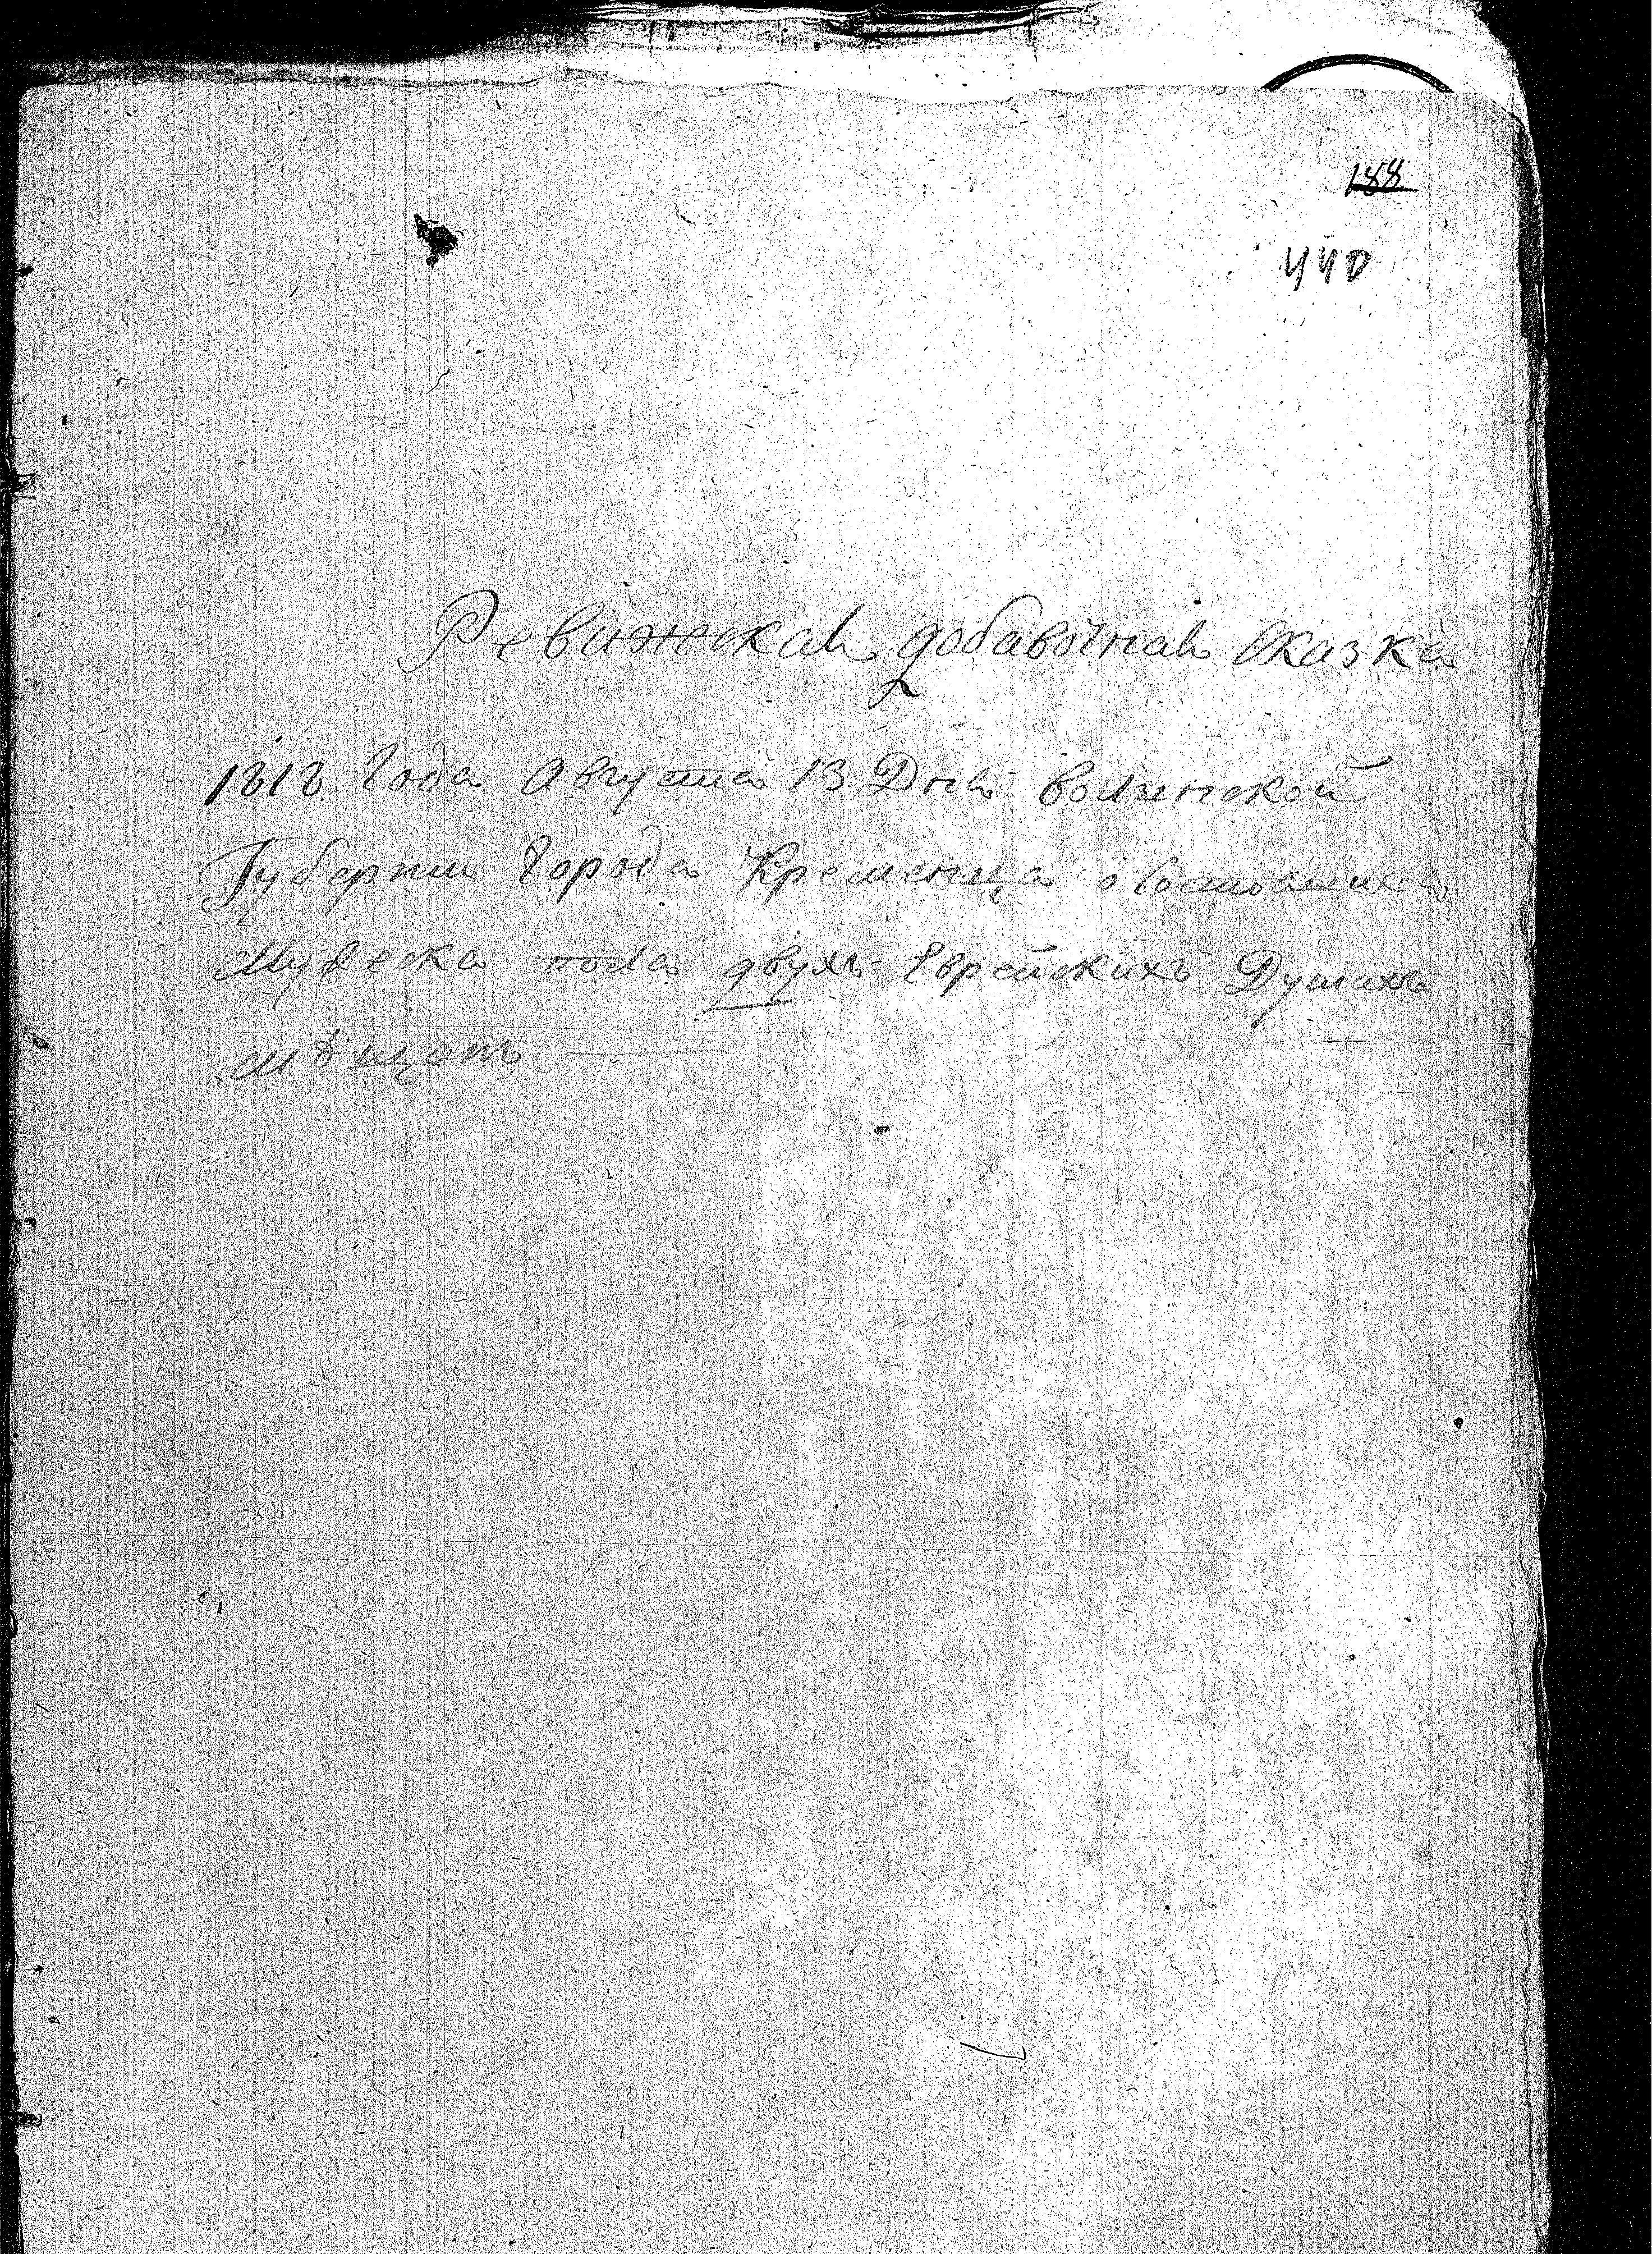 188
440
Ревижская добавочная сказка
1818 Года Августа 13 Дня волынской
Губернии Города Кременца о
Мужеска пола двухъ Еврейскихъ Душахъ
мѣщанъ